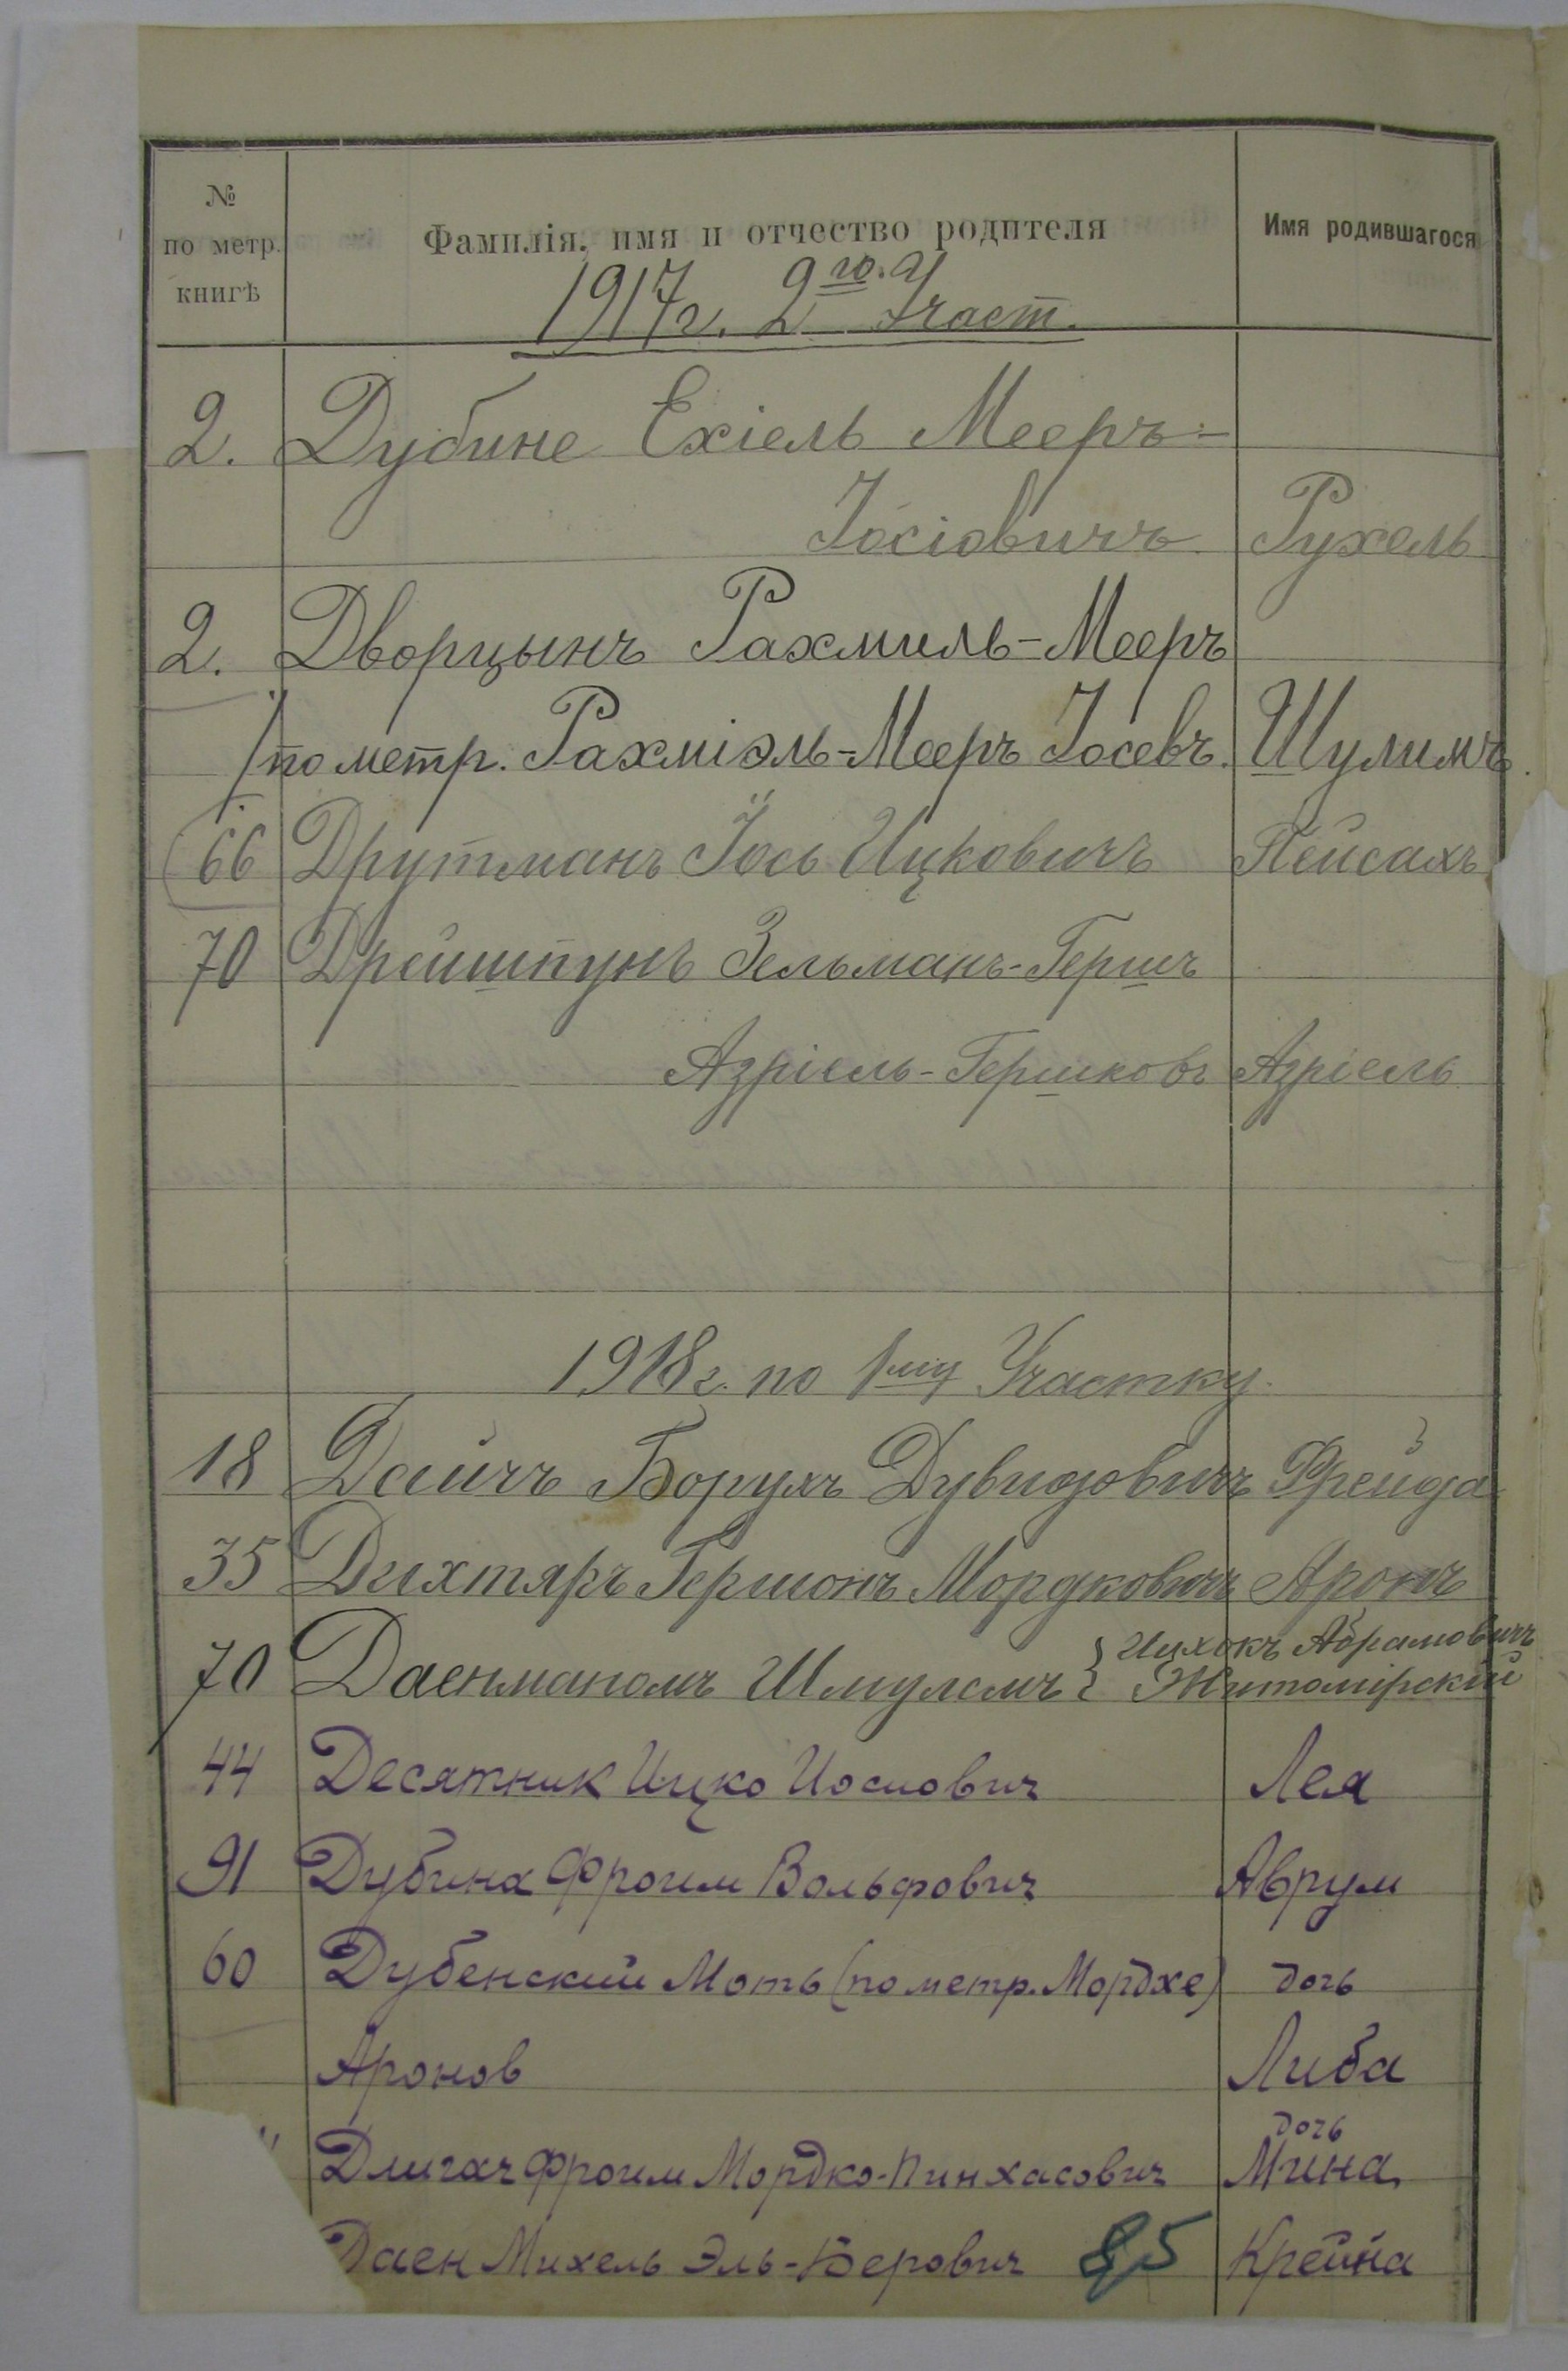 № по метр. книгѣ
Фамилія, имя и отчество родителя
Имя родившагося
1917г. 2го. Участ.
2. Дубине Ехіель Мееръ-
Іосіовичъ Рухель
2. Дворцынъ Рахмиль-Мееръ
/по метр. Рахміэль-Мееръ Іосевъ. Шулимъ.
66 Друтманъ Іось Ицковичъ Пейсахъ
70 Дрейшпунъ Зельманъ-Гершъ
Азріель-Гершковъ Азріель
1918г. по 1му Участку.
18 Дайчъ Борухъ Дувидовичъ Фрейда
35 Дихтяръ Гершонъ Мордковичъ Аронъ
70 Даенманомъ Шмулемъ { Ицхокъ Абрамовичъ
Житомірскій
44 Десятник Ицко Иосиович Лея
91 Дубина Фроим Вольфович Аврум
60 Дубенский Моть (по метр. Мордхе) дочь
Аронов Либа
дочь
" Длигач Фроим Мордко-Пинхасович Мина
Даен Михель Эль-Берович 85 Крейна